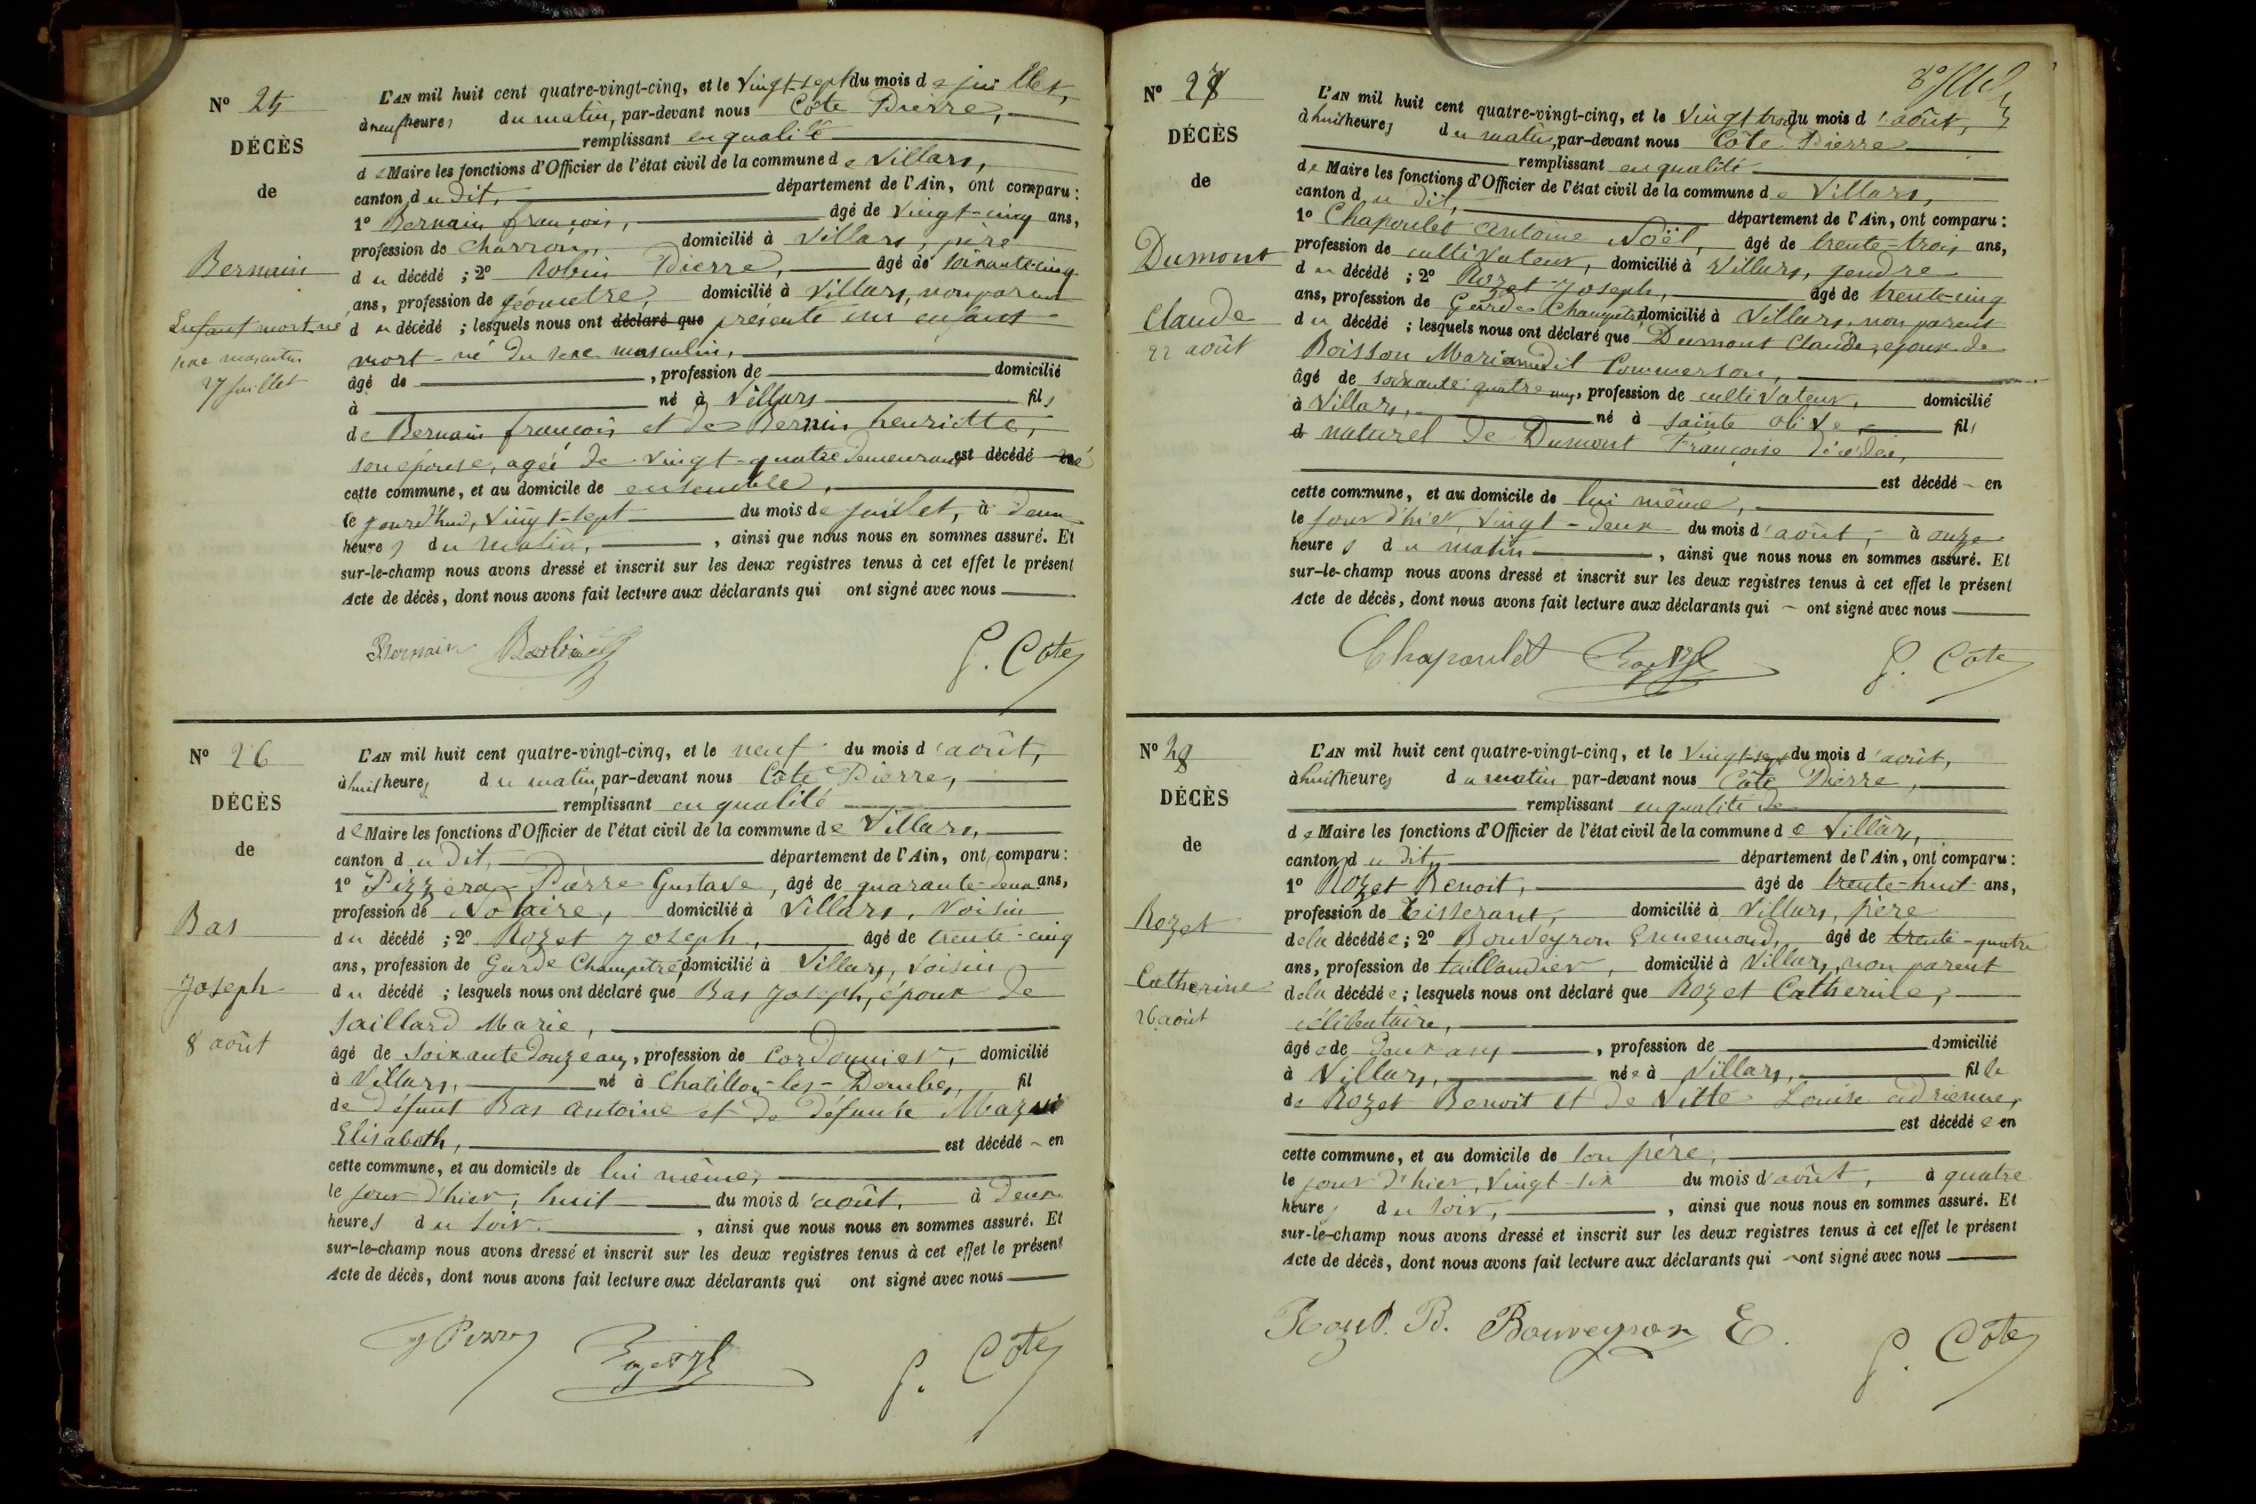 N° 25
DÉCÈS
de
Bernain
Enfant mort-né
sexe masculin
27 juillet
L'AN mil huit cent quatre-vingt-cinq, et le vingt-sept du mois de juillet,
à neuf heures du matin, par-devant nous Côte Pierre,
remplissant en qualité
de Maire les fonctions d'Officier de l'état civil de la commune de Villars,
canton du dit, département de l'Ain, ont comparu :
1° Bernain françois, âgé de vingt-cinq ans,
profession de charron, domicilié à Villars, père
du décédé ; 2° Robin Pierre, âgé de soixante-cinq
ans, profession de géomètre, domicilié à Villars, non parent
du décédé ; lesquels nous ont déclaré que présenté un enfant
mort-né du sexe masculin,
âgé de , profession de domicilié
à né à Villars fils
de Bernain françois et de Bernin henriette,
son épouse, agée de vingt-quatre demeurant est décédé
cette commune, et au domicile de ensemble,
le jourd'hui, vingt-sept du mois de juillet, à deux
heures du matin, , ainsi que nous nous en sommes assuré. Et
sur-le-champ nous avons dressé et inscrit sur les deux registres tenus à cet effet le présent
Acte de décès, dont nous avons fait lecture aux déclarants qui ont signé avec nous
Bernain P. Côte
N° 26
DÉCÈS
de
Bas
Joseph
8 août
L'AN mil huit cent quatre-vingt-cinq, et le neuf du mois d'août,
à huit heures du matin, par-devant nous Côte Pierre,
remplissant en qualité
de Maire les fonctions d'Officier de l'état civil de la commune de Villars,
canton du dit, département de l'Ain, ont comparu :
1° Pizzera Pierre Gustave, âgé de quarante-deux ans,
profession de Notaire, domicilié à Villars, voisin
du décédé ; 2° Rozet Joseph, âgé de trente-cinq
ans, profession de Garde Champêtre, domicilié à Villars, voisin
du décédé ; lesquels nous ont déclaré que Bas Joseph, époux de
Saillard Marie,
âgé de soixante douze ans, profession de Cordonnier, domicilié
à Villars, né à Chatillon-les-Dombes, fil
de défunt Bas Antoine et de défunte
Elisabeth, est décédé en
cette commune, et au domicile de lui même,
le jour d'hier, huit du mois d'août, à deux
heures du soir , ainsi que nous nous en sommes assuré. Et
sur-le-champ nous avons dressé et inscrit sur les deux registres tenus à cet effet le présent
Acte de décès, dont nous avons fait lecture aux déclarants qui ont signé avec nous
P. Côte
N° 27
DÉCÈS
de
Dumont
Claude
22 août
L'AN mil huit cent quatre-vingt-cinq, et le vingt trois du mois d'août,
à huit heures du matin, par-devant nous Côte Pierre
remplissant en qualité
de Maire les fonctions d'Officier de l'état civil de la commune de Villars,
canton du dit, département de l'Ain, ont comparu :
1° Chapoulet Antoine Noël, âgé de trente-trois ans,
profession de cultivateur, domicilié à Villars, gendre
du décédé ; 2° Rozet Joseph, âgé de trente-cinq
ans, profession de Garde Champêtre, domicilié à Villars, non parent
du décédé ; lesquels nous ont déclaré que Dumont Claude, epoux de
Boisson Marianne dit Commerson,
âgé de soixante quatre ans, profession de cultivateur, domicilié
à Villars, né à sainte olive, fils
naturel de Dumont Françoise décédée,
est décédé en
cette commune, et au domicile de lui même,
le jour d'hier, vingt-deux du mois d'août, à onze
heures du matin , ainsi que nous nous en sommes assuré. Et
sur-le-champ nous avons dressé et inscrit sur les deux registres tenus à cet effet le présent
Acte de décès, dont nous avons fait lecture aux déclarants qui ont signé avec nous
Chapoulet P. Côte
N° 28
DÉCÈS
de
Rozet
Catherine
26 août
L'AN mil huit cent quatre-vingt-cinq, et le vingt-sept du mois d'août,
à huit heures du matin par-devant nous Côte Pierre,
remplissant en qualité de
de Maire les fonctions d'Officier de l'état civil de la commune de Villars,
canton du dit, département de l'Ain, ont comparu :
1° Rozet Benoit, âgé de trente-huit ans,
profession de tisserant, domicilié à Villars, père
de la décédée ; 2° Bouveyron Ennemond, âgé de trente-quatre
ans, profession de taillandier, domicilié à Villars, non parent
de la décédée ; lesquels nous ont déclaré que Rozet Catherine,
célibataire,
âgée de deux ans , profession de domicilié
à Villars, née à Villars, fille
de Rozet Benoit et de Vitte Louise adrienne,
est décédée en
cette commune, et au domicile de son père,
le jour d'hier, vingt-six du mois d'août, à quatre
heures du soir, , ainsi que nous nous en sommes assuré. Et
sur-le-champ nous avons dressé et inscrit sur les deux registres tenus à cet effet le présent
Acte de décès, dont nous avons fait lecture aux déclarants qui ont signé avec nous
Rozet. B. Bouveyron E. P. Côte